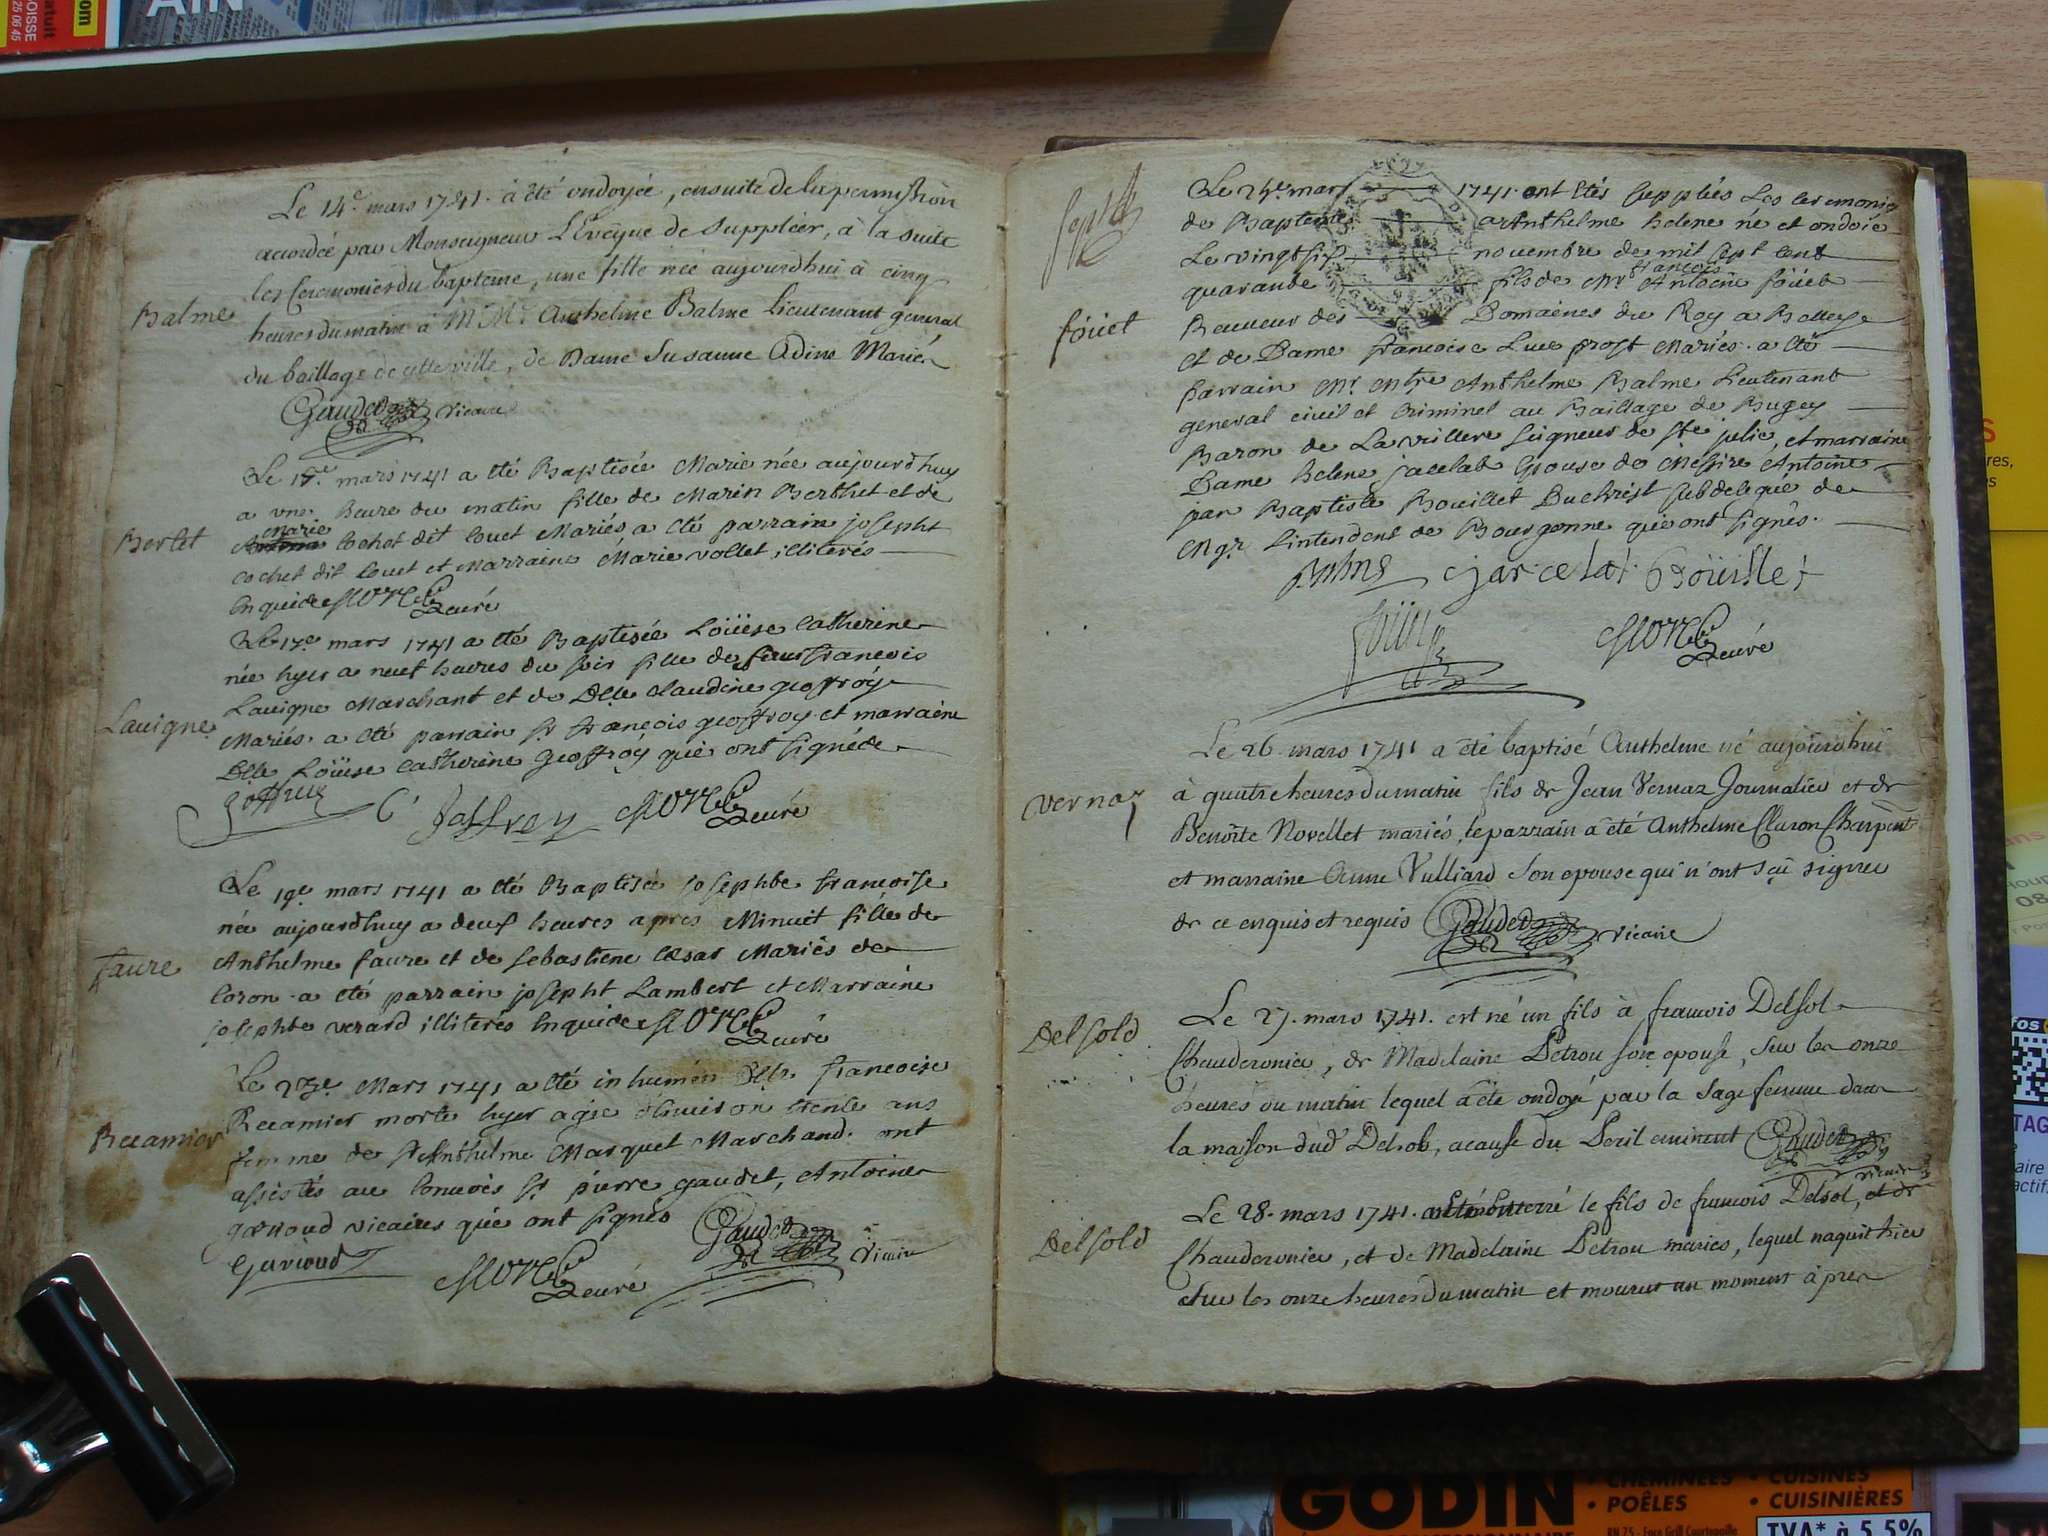 Balme
Le 14e. mars 1741. à été ondoyée, ensuite de la permission
accordée par Monseigneur L'Eveque de suppléer, à la suite
les Ceremonies du bapteme, une fille née aujourdhui à cinq
heures du matin à Mr Me. Anthelme Balme Lieutenant general
du baillage de cette ville, de Dame Susanne Adine Mariés
Gaudet vicaire
Berlet
Le 15e. mars 1741 a eté Baptisée Marie née aujourdhuy
a vne heure du matin fille de Marin Berthet et de
Marie
cochet dit louet Mariés a eté parrain josepht
cochet dit louet et Marraine Marie vollet illiterés
Enquis de curé
Lauigne
Le 17e mars 1741 a eté Baptisée Loüise Catherine
née hyer a neuf heures du soir fille de sieur francois
Lauigne Marchant et de Dlle Claudine geoffroy
Mariés. a eté parrain sr françois geoffroy et marraine
Dlle Loüise Catherine geoffroy qui ont signé de
Joffrey curé
faure
Le 19e mars 1741 a eté Baptisée josephte francoise
née aujourdhuy a deux heures apres Minuit fille de
Anthelme faure et de sebastiene Cesar Mariés de
Coron. a eté parrain josepht Lambert et Marraine
josephte verard illiterés Enquis de curé
Recamier
Le 23e Mars 1741 a eté inhumée Dlle francoise
Recamier morte hyer agée d'environ trente ans
femme de sr Anthelme Marquet Marchand. ont
assistés au Convois sr pierre gaudet, Antoine
garnoud vicaires qui ont signés
Garnoud curé Gaudet vicaire
foüet
Le 24e mars 1741. ont étés supplés Les ceremonies
de Bapteme a Anthelme helene né et ondoié
Le vingt six novembre de mil sept cent
francois
quarante fils de Mr Antoine foüet
Receueur des Domaines du Roy a Belley
et de Dame francoise Luce prost Mariés. a eté
parrain Mr. Mtre Anthelme Balme Lieutenant
general civil et Criminel au Baillage de Bugey
Baron de La villere seigneur de ste julie, et marraine
Dame helene jarcelat Epouse de Messire Antoine
jean Baptiste Bouillet Buchrist subdelegué de
Mgr Lintendent de Bourgonne qui ont signés.
Balme jarcelat Boüillet
foüet curé
vernaz
Le 26 mars 1741 a été baptisé Anthelme né aujourdhui
à quatre heures du matin fils de Jean Vernaz Journalier et de
Benoite Novellet mariés, le parrain a été Anthelme Claron Charpent
et marraine Anne Vulliard son epouse qui n'ont sçû signer
de ce enquis et requis Gaudet vicaire
Delsold
Le 27. mars 1741. est né un fils à francois Delsol
Chauderonier, de Madelaine Petrou son epouse, sur les onze
heures du matin lequel a été ondoyé par la sage femme dans
la maison dud' Delsol, a cause du Peril eminent Gaudet
vicaire
Delsold
Le 28. mars 1741. a été enterré le fils de francois Delsol, et de
Chauderonier, et de Madelaine Petrou maries, lequel naquit hier
sur les onze heures du matin et mourut un moment àpres
GODIN
• CHEMINÉES • CUISINES
• POÊLES • CUISINIÈRES
TVA* à 5.5%
AIN